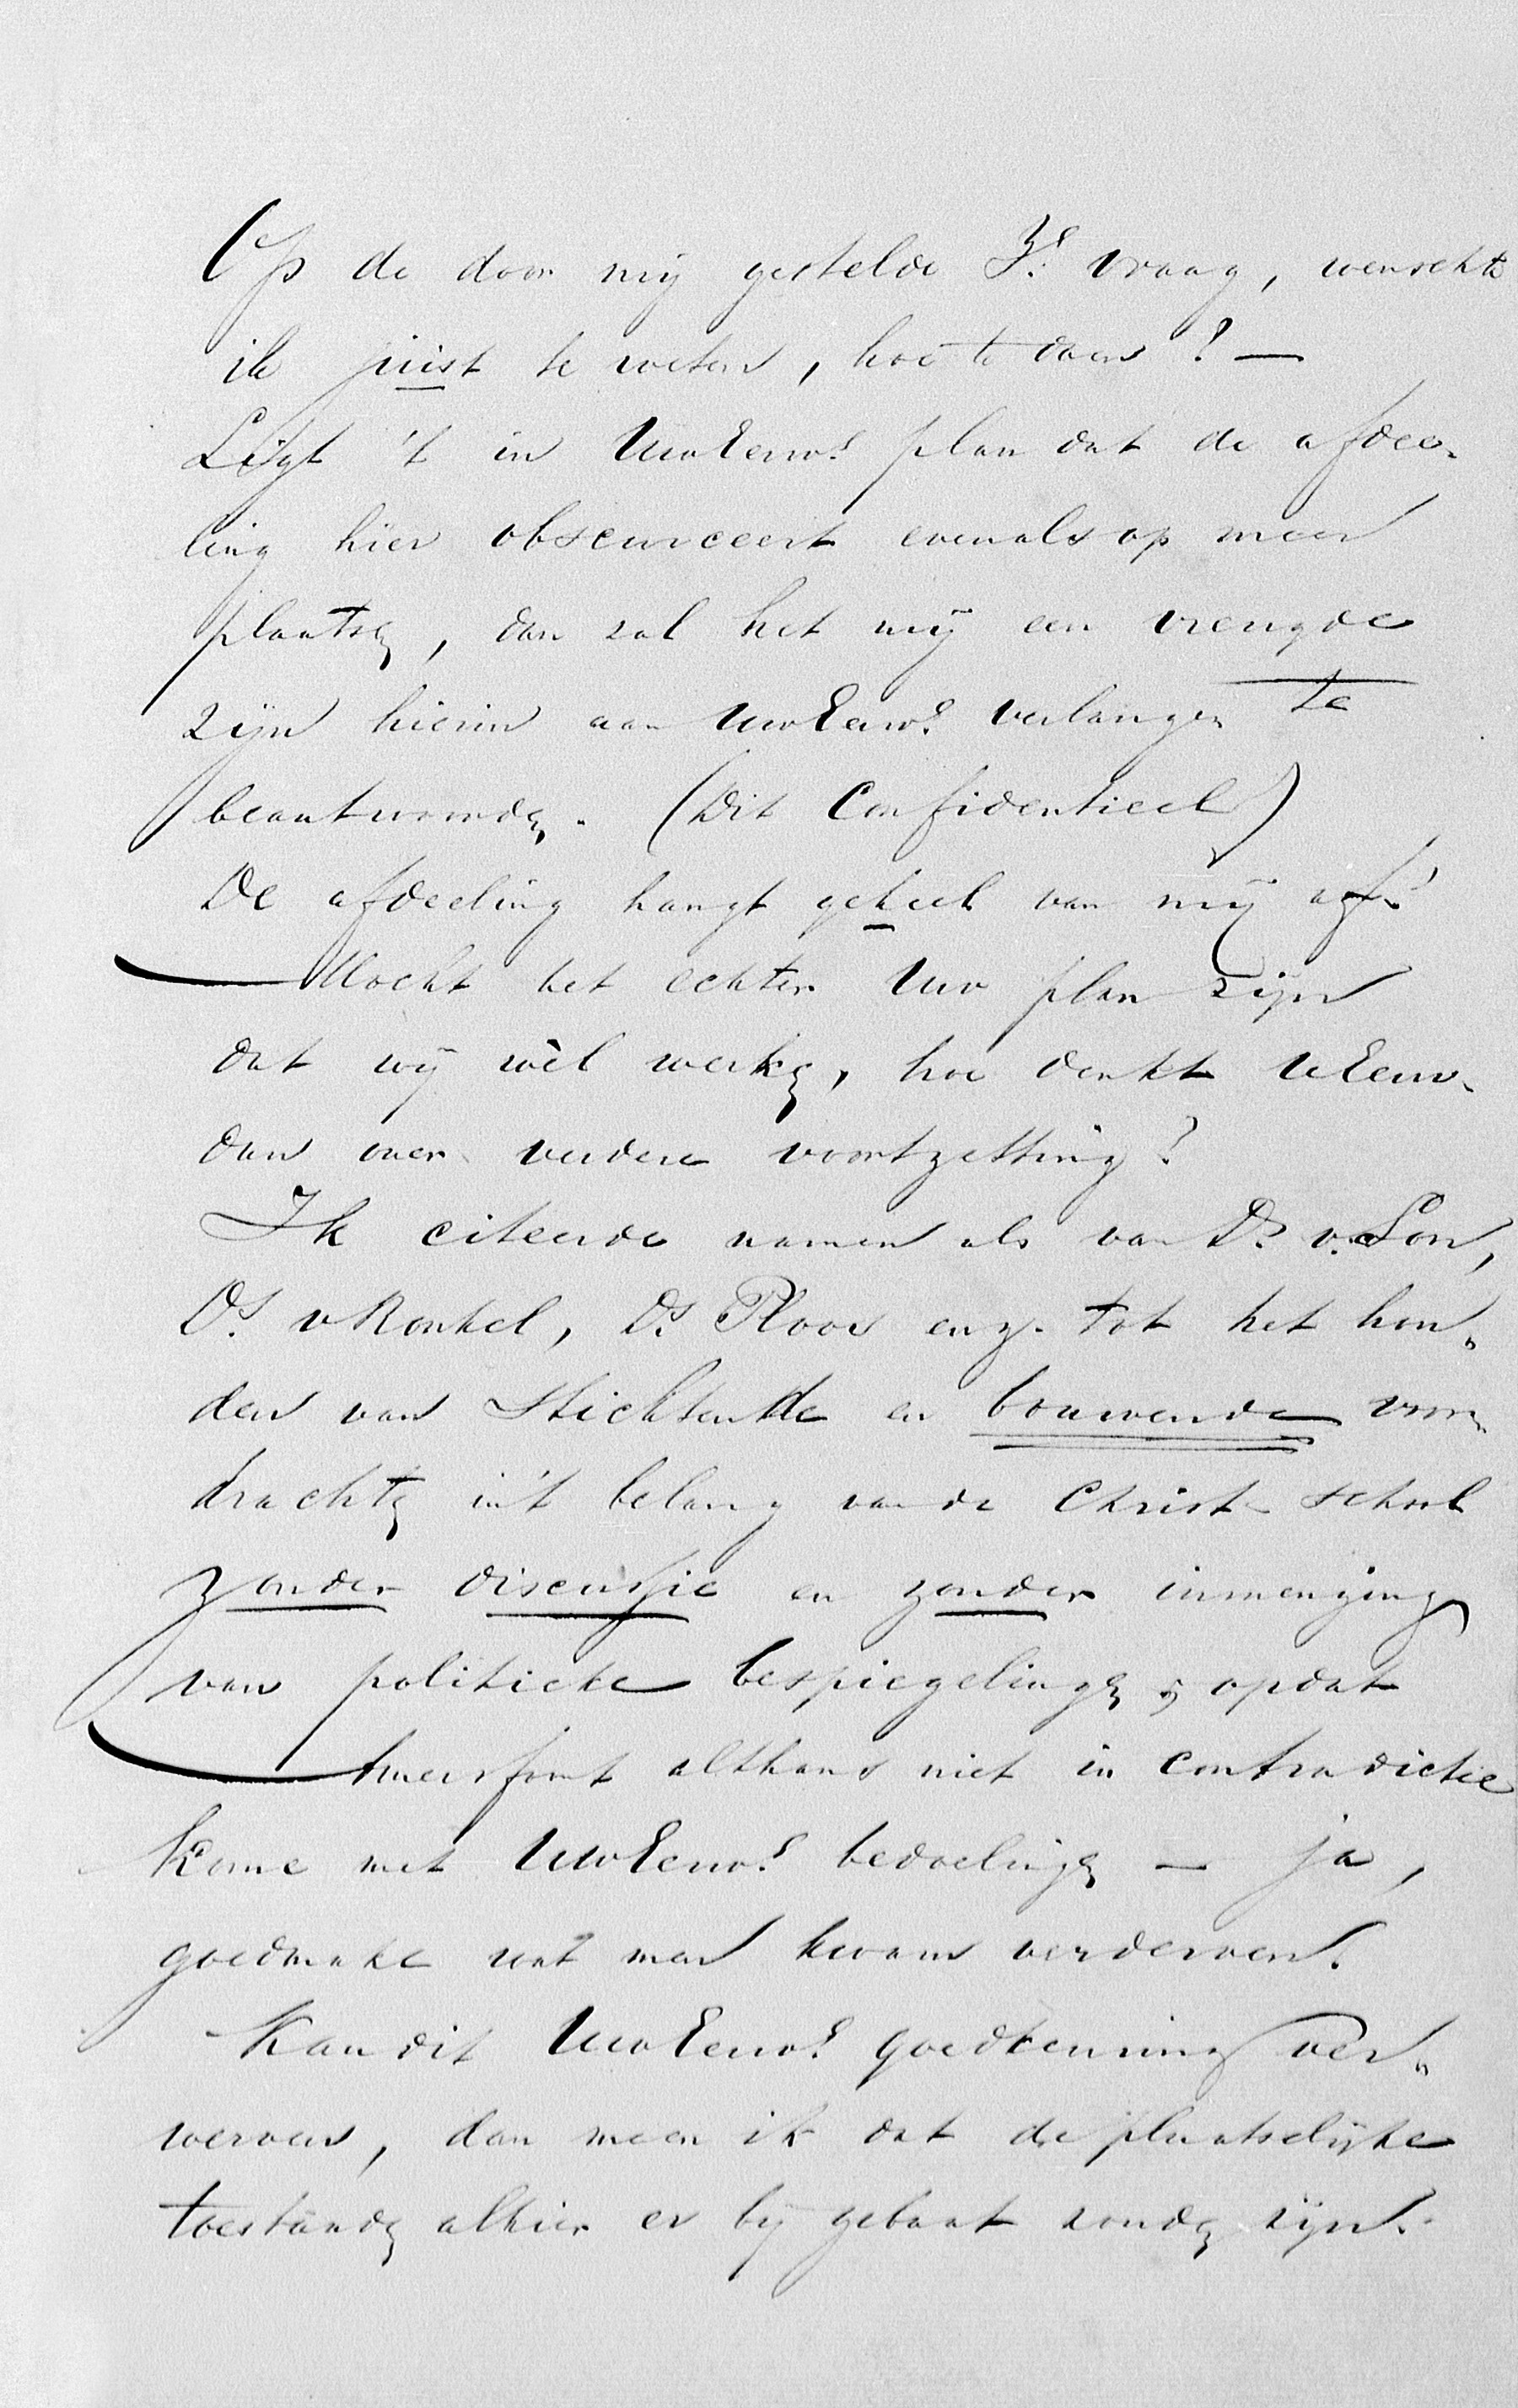 Op de door mij gestelde 3e vraag, wenschte
ik juist te weten, hoe te doen? —
Ligt 't in UwEerws plan dat de afdee-
ling hier obscurceert evenals op meer
plaatsen, dan zal het mij een vreugde
zijn hierin aan UwEerws verlangen te
beantwoorden. (Dit Confidentieel)
De afdeeling hangt geheel van mij af!
Mocht het echter Uw plan zijn
dat wij wèl werken, hoe denkt UEerw.
dan over verdere voortzetting?
Ik citeerde namen als van Ds v. Son,
Ds. v Ronkel, Ds. Ploos enz. tot het hou-
den van stichtende en bouwende voor-
drachten in't belang van de Christ. school
zonder discussie en zonder inmenging
van politieke bespiegelingen, opdat
Amersfoort althans niet in contradictie
kome met UwEerws bedoelingen — ja,
goedmake wat men kwam verderven.
Kan dit UwEerws goedkeuring ver-
werven, dan meen ik dat de plaatselijke
toestanden alhier er bij gebaat zouden zijn.